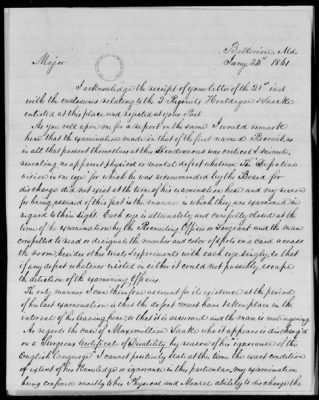 Baltimore, Md.
Jany 25th 1861
Major
I acknowledge the receipt of your letter of the 21st inst
with the enclosures relating to the 2 Recruits Hontdegen & Saacke
enlisted at this place, and rejected at your Post.
As you call upon me for a report on the same I would remark
here that the examination made in that of the first named Recruit as
in all that present themselves at this Rendezvous was critical & minute,
revealing no apparent physical or mental defect whatever. The "
vision in one eye" for which he was recommended by the Board for
discharge did not exist at the time of his examination here and my reason
for being assured of this fact is the manner in which they are examined in
regard to their sight. Each eye is alternately and carefully closed at the
time of the examination by the Recruiting Officer or Sergeant and the man
compelled to read or designate the number and color of spots on a card across
the room, besides other tests & experiments with each eye singly, so that
if any defect whatever existed in either it could not possibly escape
the detection of the examining Officers.
The only manner I can therefore account for its existence at the period
of his last examination is that the defect must have taken place in the
interval of his leaving here, or that it is assumed and the man is malingering.
As regards the case of Maximillian Saacke who it appears is discharged
on a Surgeons Certificate of Disability by reason of his "ignorance of the
English Language" I cannot positively state at this time the exact condition
of extent of his knowledge or ignorance in this particular, my examination
being confined mostly to his Physical and Mental ability to discharge the